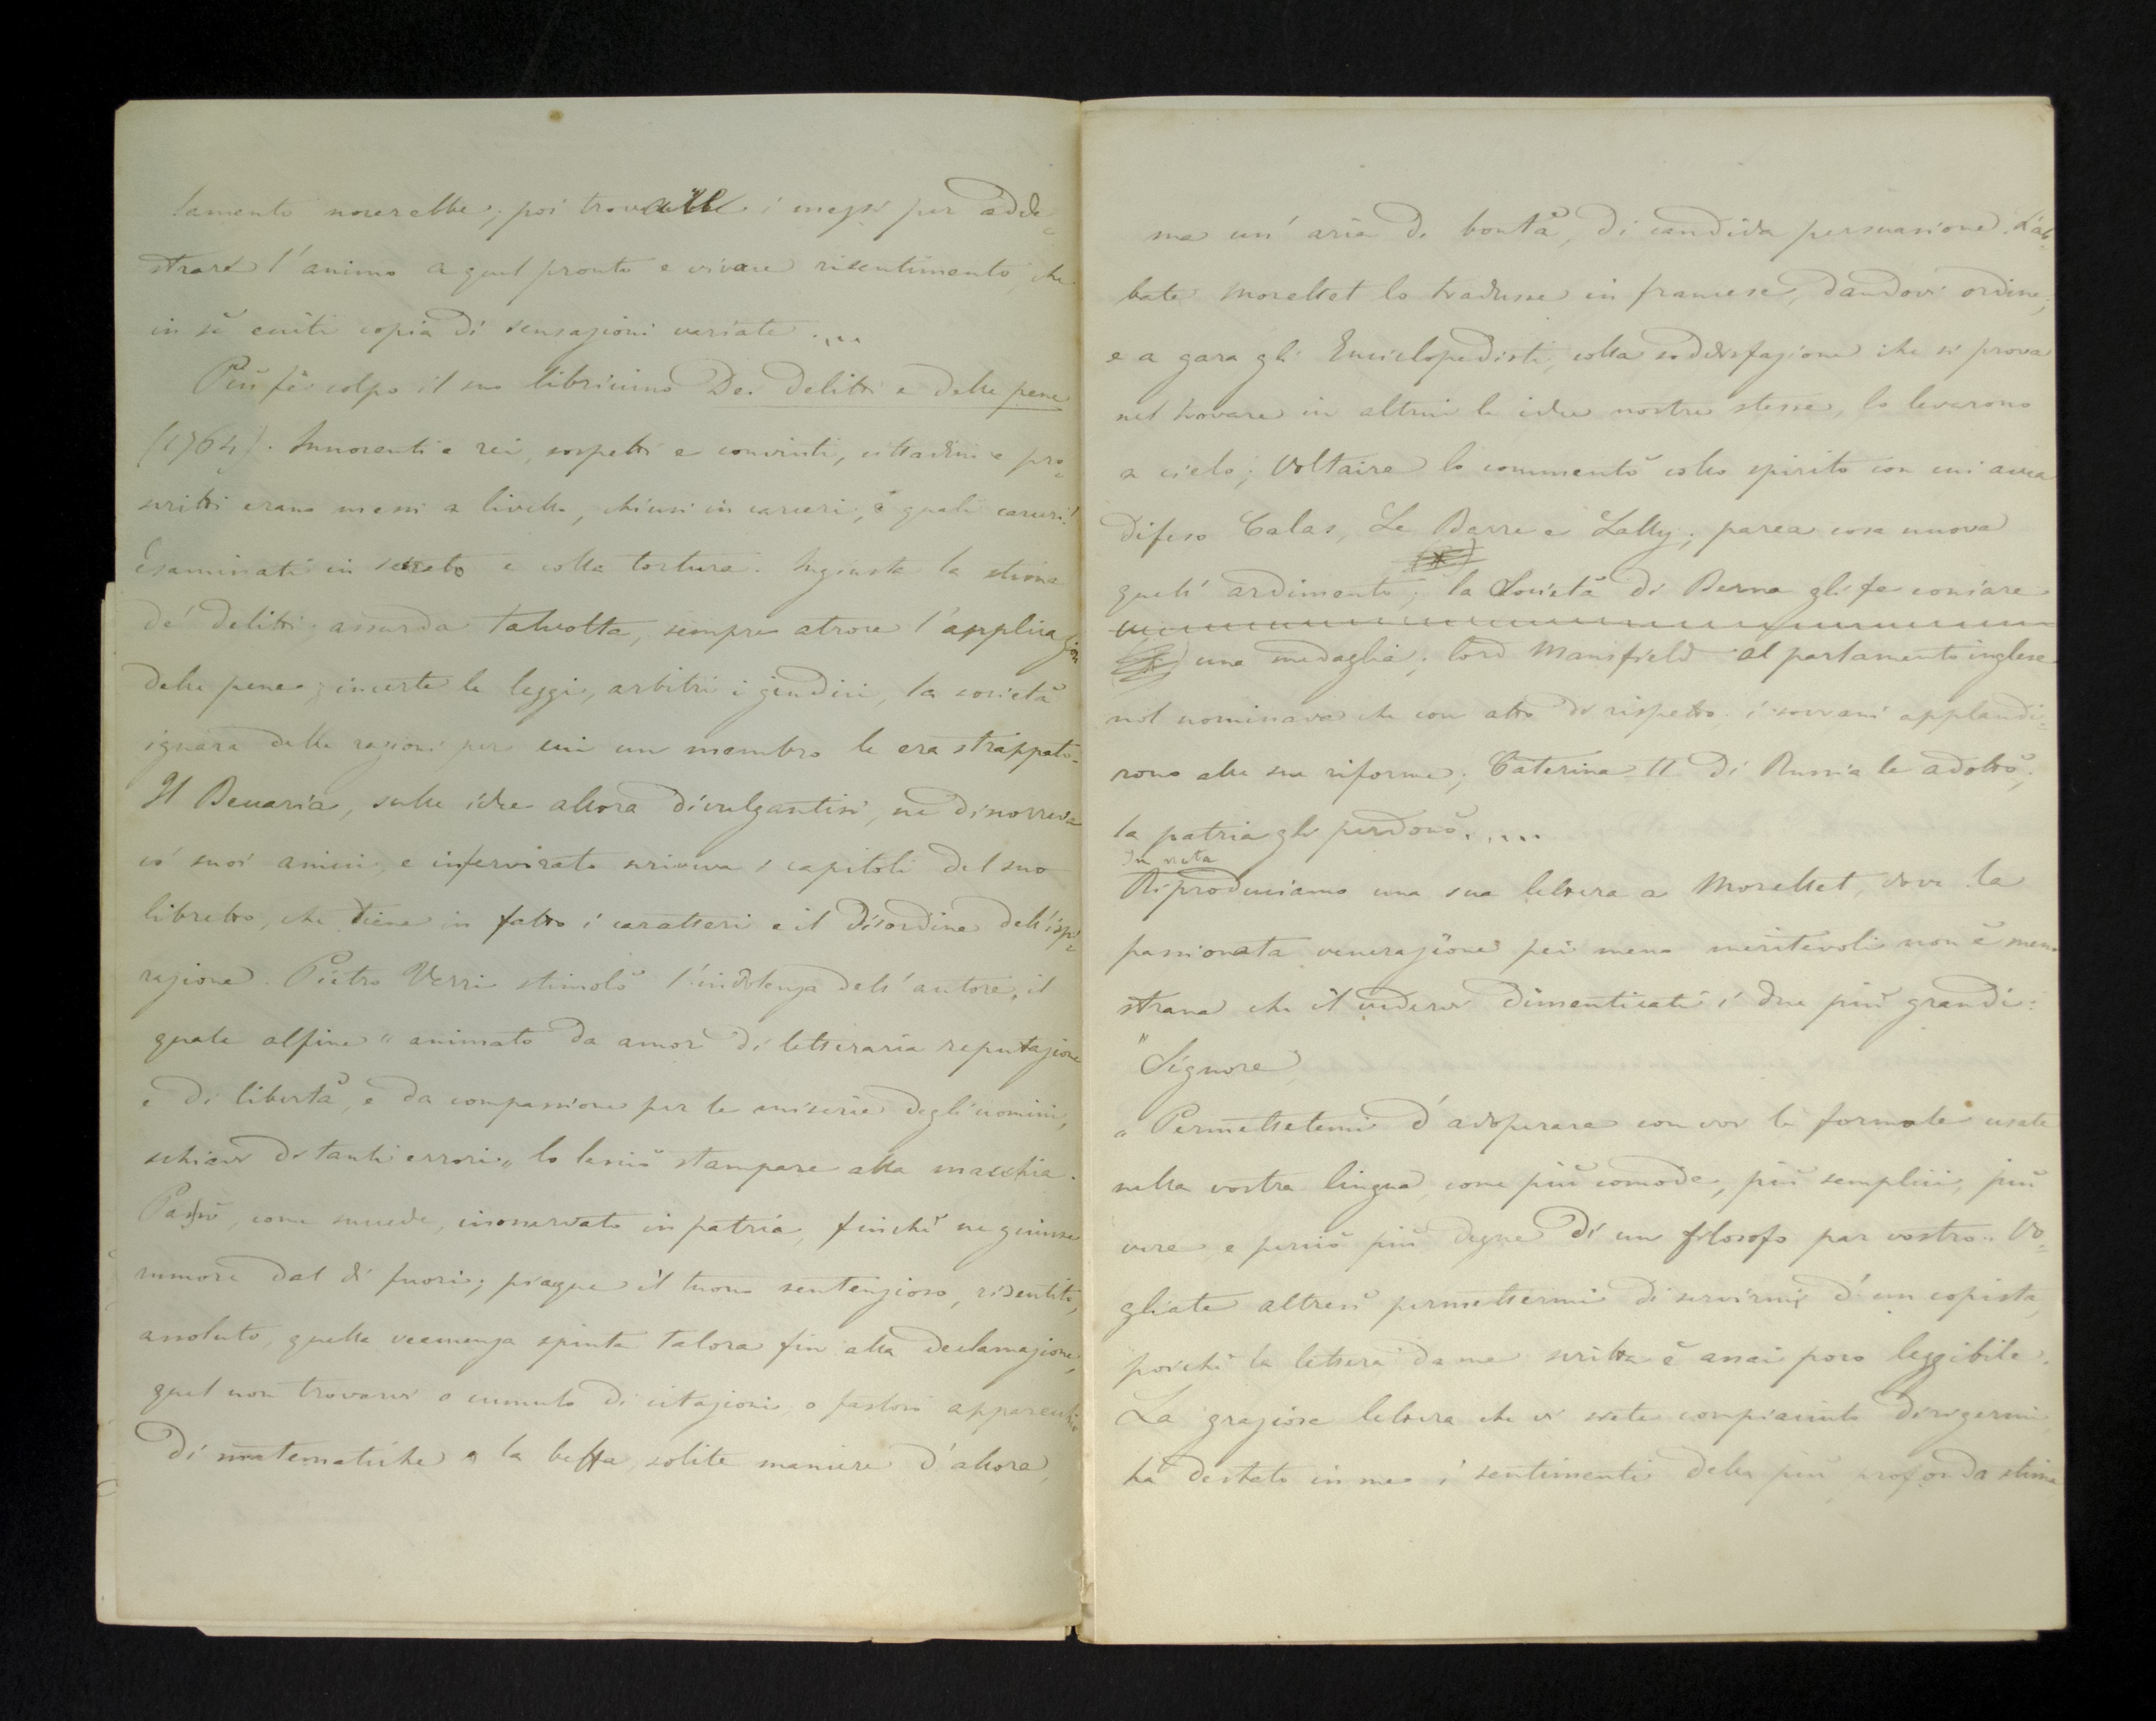 lamento nocerebbe; poi trovare i mezzi per adde=
strare l'animo a quel pronto e vivace risentimento, che
in sè ecciti copia di sensazioni variate ....
Più fè colpo il suo libricino Dei delitti e delle pene
(1764). Innocenti e rei, sospetti e convinti, cittadini e pro=
scritti erano messi a livello, chiusi in carceri, e quali carceri!
Esaminati in secreto e colla tortura. Ingiusta la stima
de' delitti; assurda talvolta, sempre atroce l'applicazion
delle pene; incerte le leggi, arbitri i giudici, la società
ignara delle ragioni per cui un membro le era strappato.
Il Beccaria, sulle idee allora divulgantisi, ne discorreva
co' suoi amici, e infervorato scriveva i capitoli del suo
libretto, che tiene in fatto i caratteri e il disordine dell'ispi=
razione. Pietro Verri stimolò l'indolenza dell'autore, il
quale alfine "animato da amor di letteraria reputazione
e di libertà, e da compassione per le miserie degli uomini,
schiavi di tanti errori„ lo lasciò stampare alla macchia.
Passò, come succede, inosservato in patria, finchè ne giunse
rumore dal di fuori; piacque il tuono sentenzioso, risentito,
assoluto, quella veemenza spinta talora fin alla declamazione,
quel non trovarvi o cumulo di citazioni, o fastosi apparenti
di matematiche o la beffa, solite maniere d'allora,
ma un' aria di bontà, di candida persuasione. L'ab=
bate Morellet lo tradusse in francese, dandovi ordine;
e a gara gli Enciclopedisti, colla soddisfazione che si prova
nel trovare in altrui le idee nostre stesse, lo levarono
a cielo; Voltaire lo commentò collo spirito con cui avea
difeso Calas, La Barre e Lally; parea cosa nuova
quell' ardimento; la Società di Berna gli fe coniare
una medaglia; lord Mansfield al parlamento inglese
nol nominava che con atto di rispetto. i sovrani applaudi=
rono alle sue riforme; Caterina II di Russia le adottò;
la patria gli perdonò.....
In nota
Riproduciamo una sua lettera a Morellet, dove la
passionata venerazione pei meno meritevoli non è meno
strana che il vedervi dimenticati i due più grandi:
"Signore
„ Permettetemi d'adoperare con voi le formole usate
nella vostra lingua, come più comode, più semplici, più
vere, e perciò più degne di un filosofo par vostro. Vo=
gliate altresì permettermi di servirmi d'un copista,
poichè la lettera da me scritta è assai poco leggibile.
La graziosa lettera che vi siete compiaciuto dirigermi
ha destato in me i sentimenti della più profonda stima